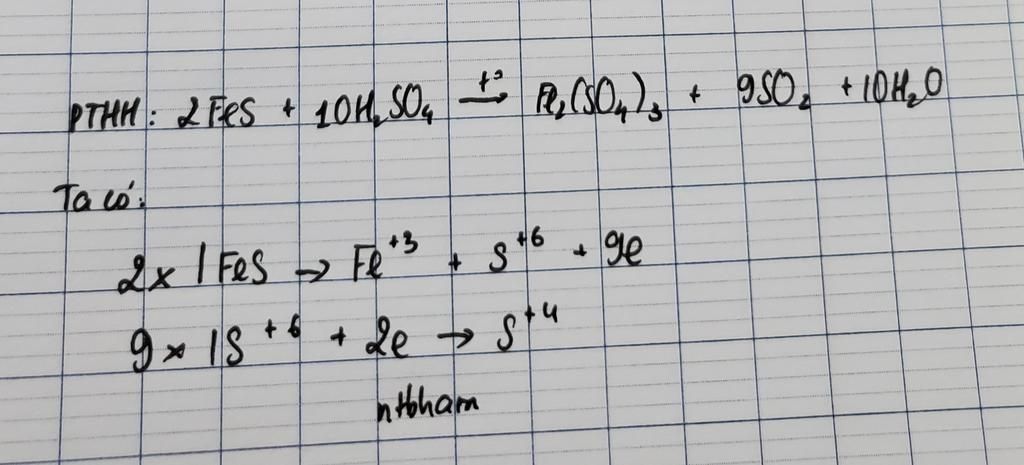 PTHH: 2FeS + 10H₂SO₄ →(t°) Fe₂(SO₄)₃ + 9SO₂ + 10H₂O
Ta có:
2x | FeS → Fe⁺³ + S⁺⁶ + 9e
9x | S⁺⁶ + 2e → S⁺⁴
ntbham